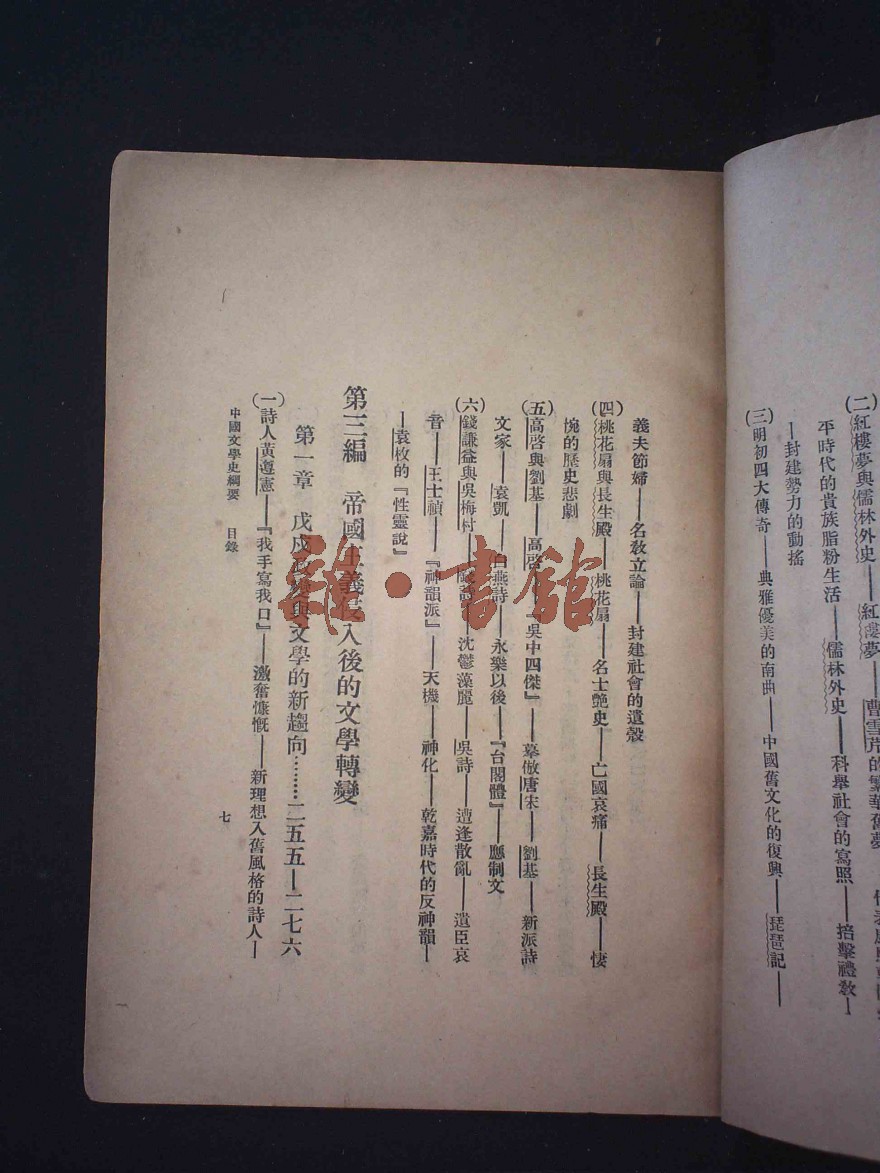 （二）紅樓夢與儒林外史——紅樓夢——曹雪芹的繁華舊夢
平時代的貴族脂粉生活——儒林外史——科舉社會的寫照——掊擊禮教—
—封建勢力的動搖
（三）明初四大傳奇——典雅優美的南曲——中國舊文化的復興——琵琶記——
義夫節婦——名敎立論——封建社會的遺殼
（四）桃花扇與長生殿——桃花扇——名士艶史——亡國哀痛——長生殿——悽
惋的歷史悲劇
（五）高啓與劉基——高啓『吳中四傑』——摹倣唐宋——劉基——新派詩
文家——袁凱——白燕詩——永樂以後——『台閣體』——應制文
（六）錢謙益與吳梅村——沈鬱藻麗——吳詩——遭逢散亂——遺臣哀
音——王士禎——『神韻派』——天機——神化——乾嘉時代的反神韻——
—袁枚的『性靈說』
第三編　帝國主義侵入後的文學轉變
第一章　戊戌政變與文學的新趨向………二五五—二七六
（一）詩人黃遵憲——『我手寫我口』——激奮慷慨——新理想入舊風格的詩人—
中國文學史綱要　目錄
七
雜·書館